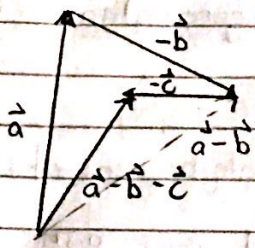 -b⃗
-c⃗
a⃗
a⃗-b⃗
a⃗-b⃗-c⃗